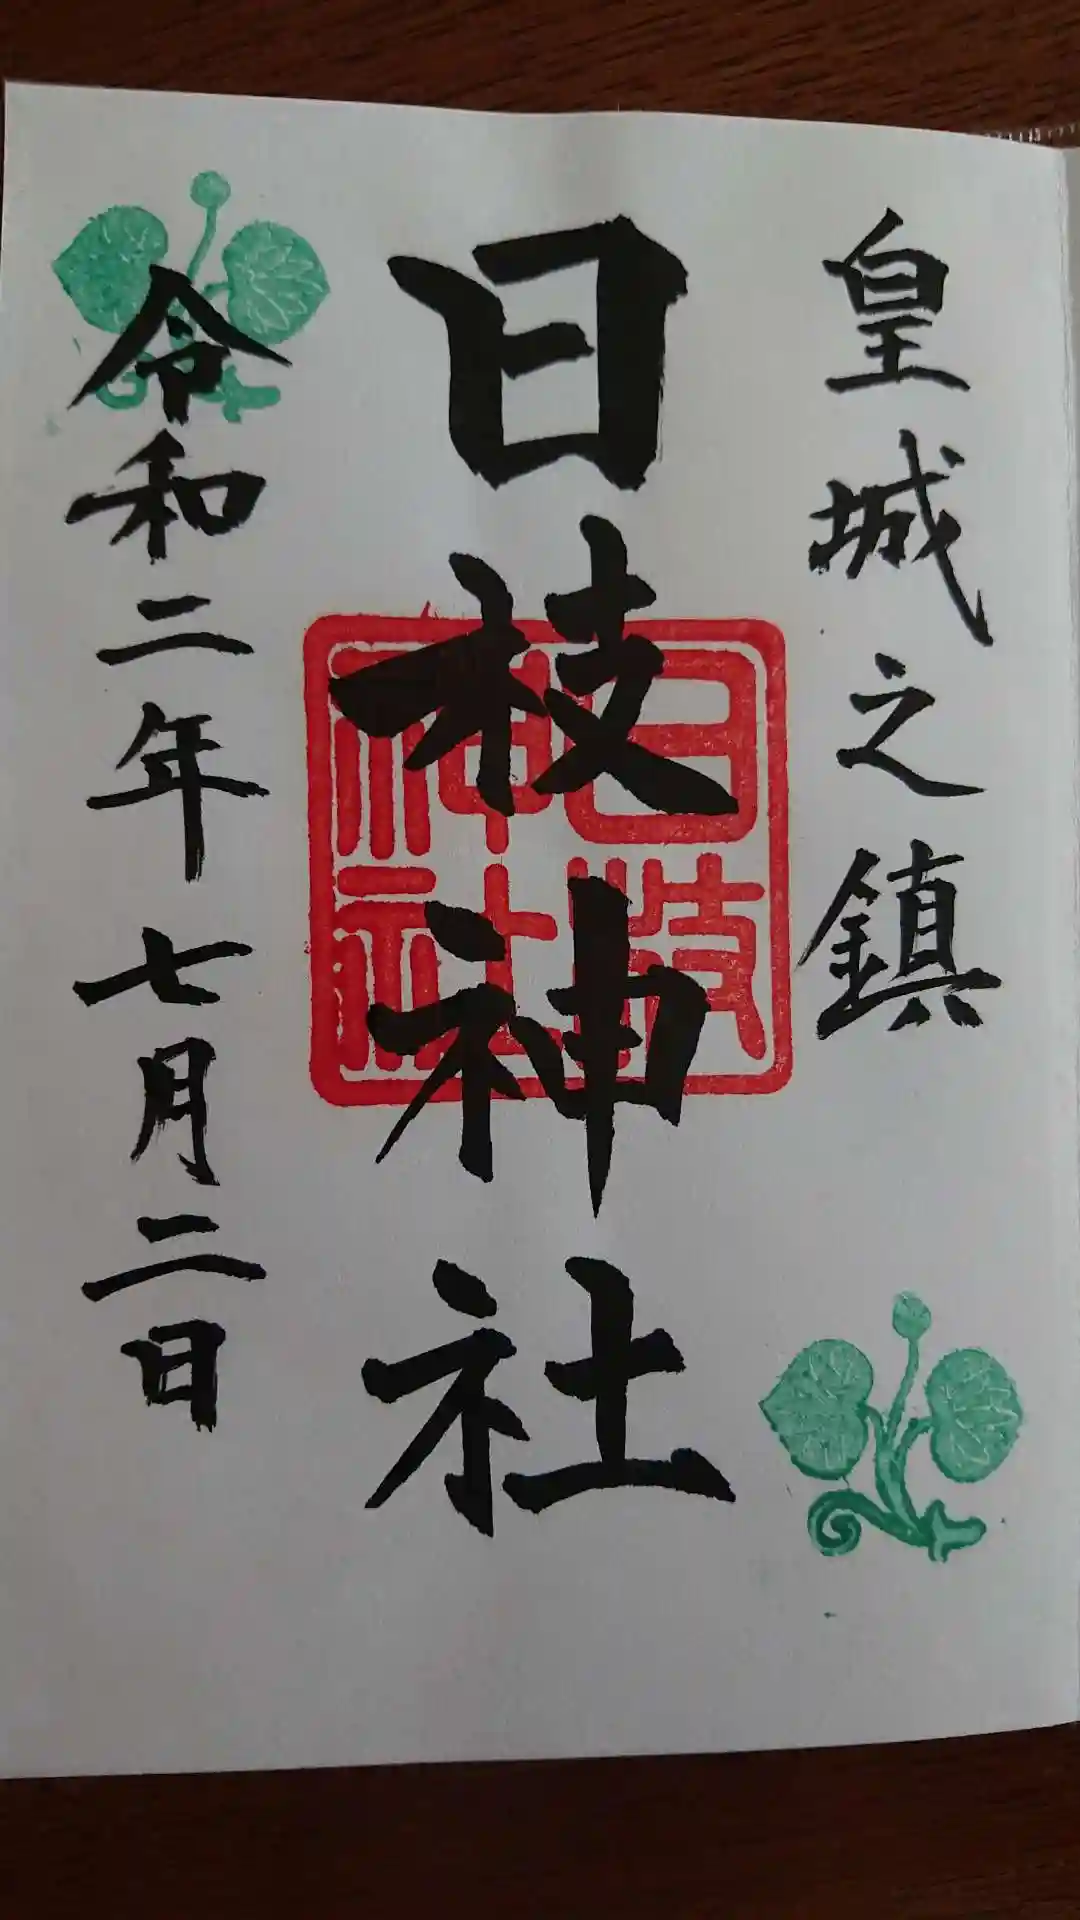 皇城之鎮
日枝神社
日枝神社
令和二年七月二日